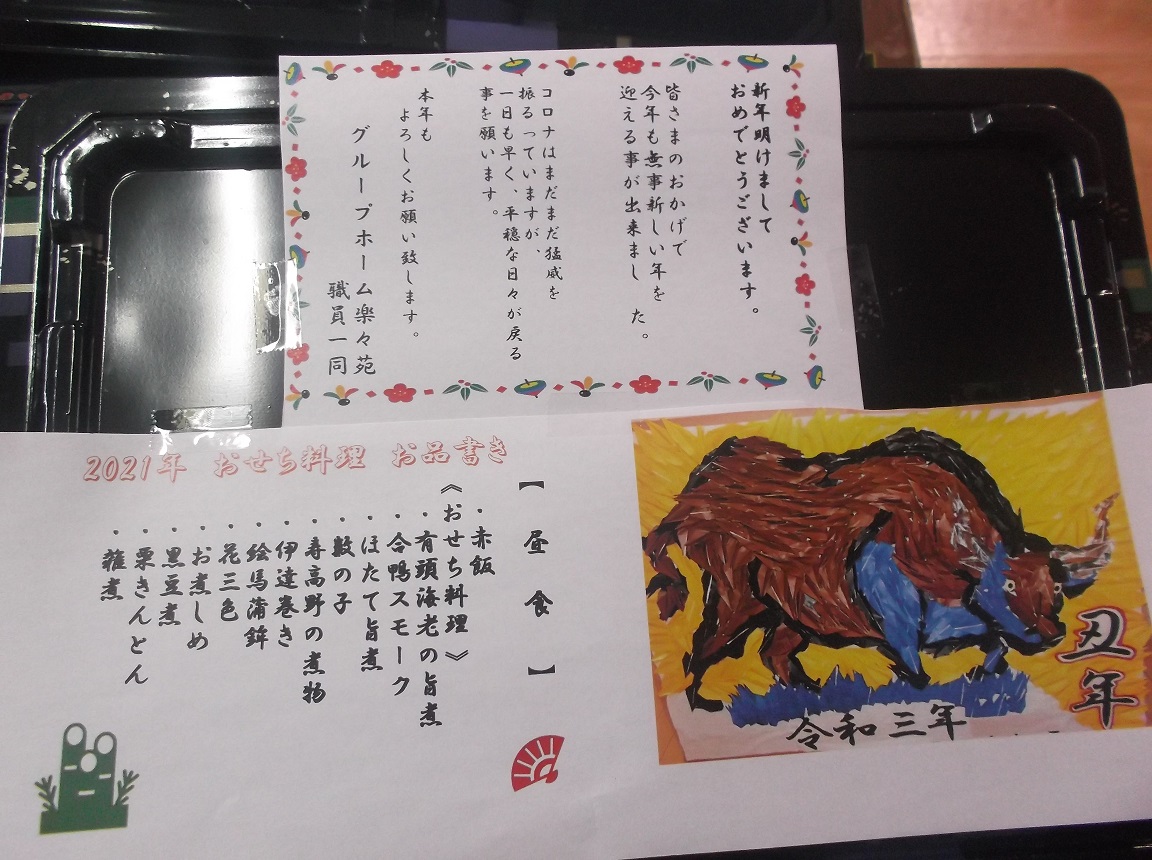 新年明けまして
おめでとうございます。
皆さまのおかげで
今年も無事新しい年を
迎える事が出来まし た。
コロナはまだまだ猛威を
振るっていますが、
一日も早く、平穏な日々が戻る
事を願います。
本年も
よろしくお願い致します。
グループホーム楽々苑
職員一同
2021年 おせち料理 お品書き
【 昼 食 】
・赤飯
《おせち料理》
・有頭海老の旨煮
・合鴨スモーク
・ほたて旨煮
・数の子
・寿高野の煮物
・伊達巻き
・絵馬蒲鉾
・花三色
・お煮しめ
・黒豆煮
・栗きんとん
・雑煮
丑年
令和三年